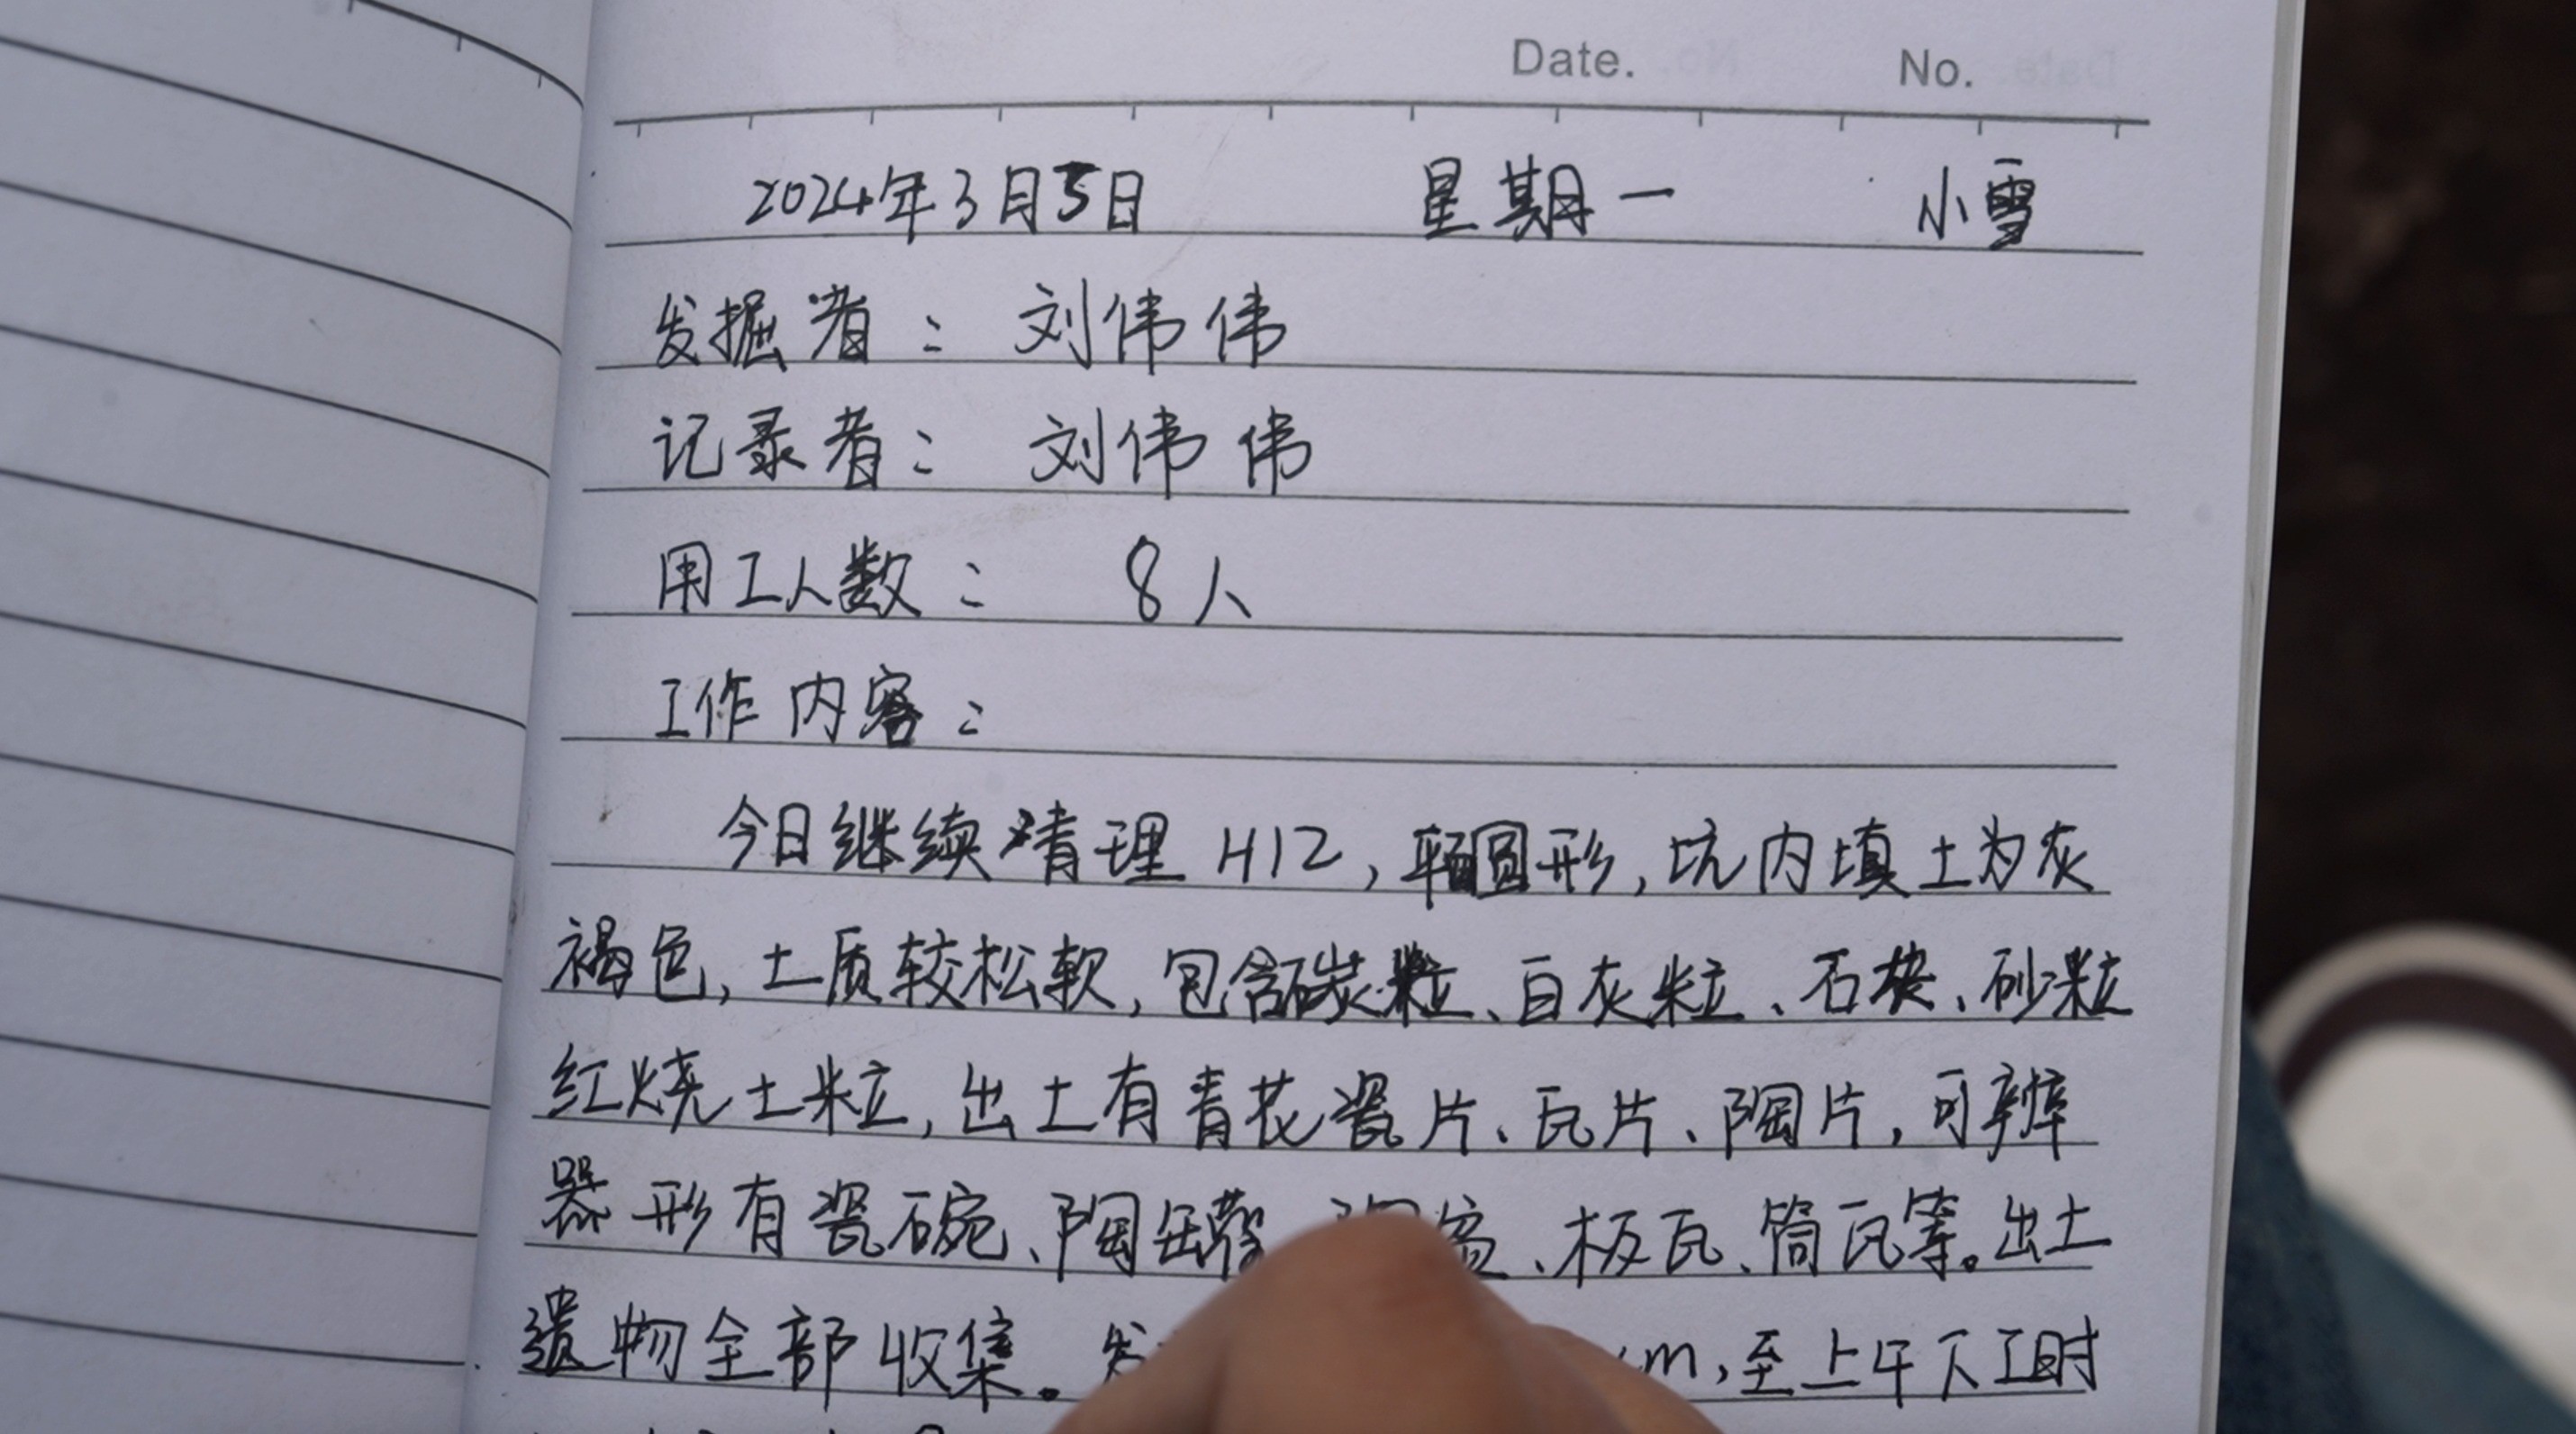 Date. No.
2024年3月5日 星期一 小雪
发掘者：刘伟伟
记录者：刘伟伟
用工人数：8人
工作内容：
今日继续清理H12，圆形，坑内填土为灰
褐色，土质较松软，包含碳粒、白灰粒、石块、砂粒
红烧土粒，出土有青花瓷片、瓦片、陶片，可辨
器形有瓷碗、陶、板瓦、筒瓦等。出土
遗物全部收集。发 m，至上午下工时